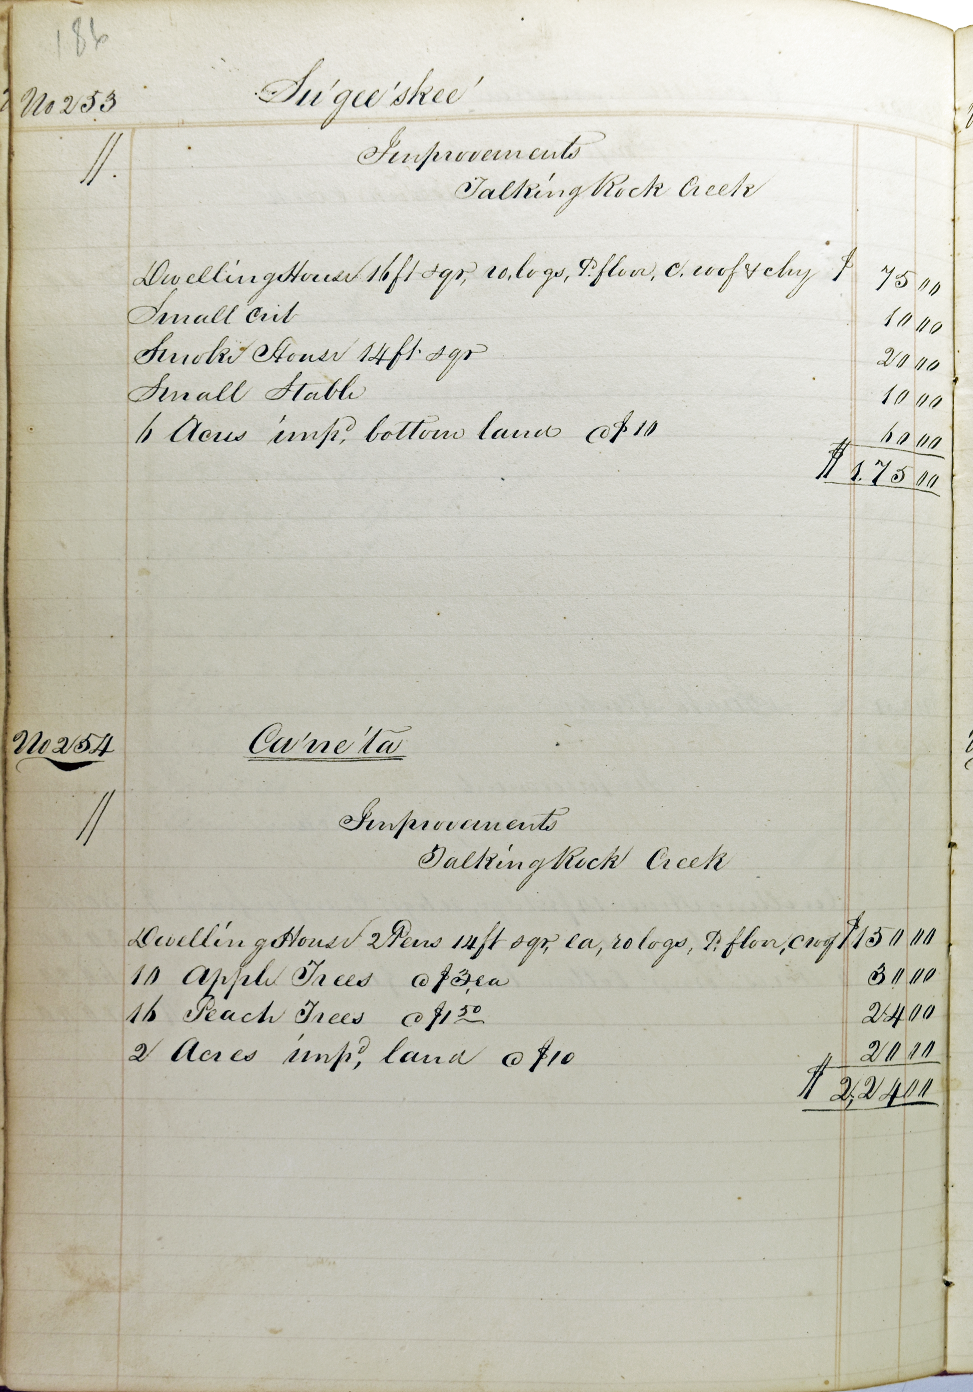 186
No 253 Su'gee'skee'
//.
Improvements
Talking Rock Creek
Dwelling House 16ft sqr, ro, logs, P. floor, c. roof & chy $ 75 00
Small crib 10 00
Smoke House 14ft sqr 20 00
Small Stable 10 00
6 Acres imp.d bottom land @ $10 60 00
$ 175 00
No 254 Ca'ne'ta
//
Improvements
Talking Rock Creek
Dwelling House 2 Pens 14ft sqr, ea, ro logs, P. floor, c roof $ 150 00
10 Apple Trees @ $3, ea 30 00
16 Peach Trees @ $1 50 24 00
2 Acres imp.d, land @ $10 20 00
$ 2,24 00